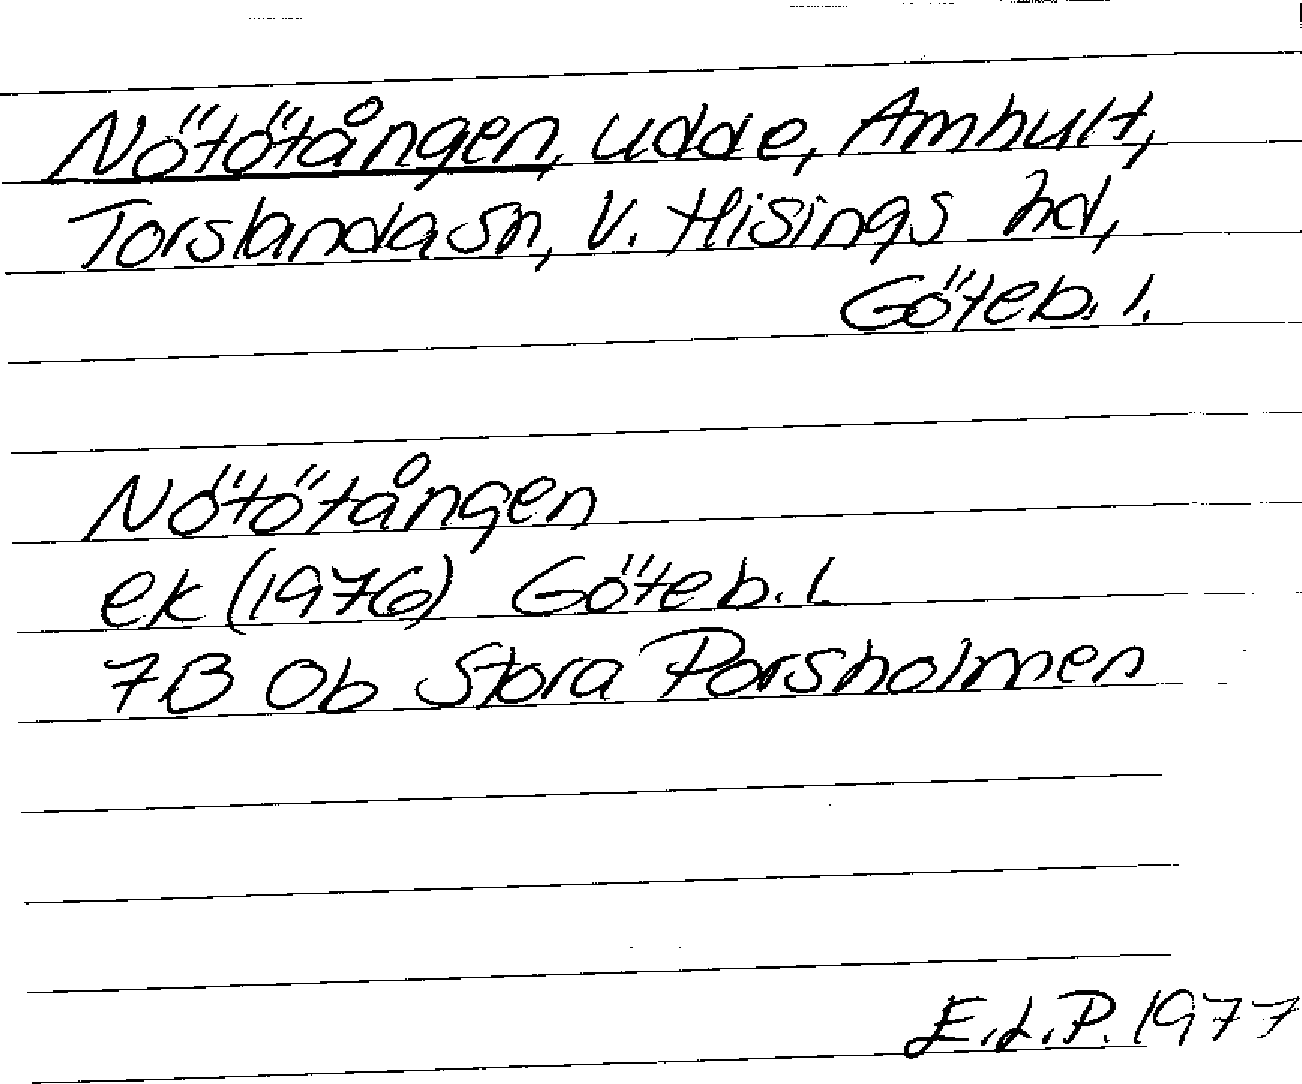 Nötötången, udde, Amhult,
Torslanda sn, V. Hisings hd,
Göteb. l.
Nötötången
ek (1976) Göteb. l.
7B 0b Stora Porsholmen
E.L.P. 1977